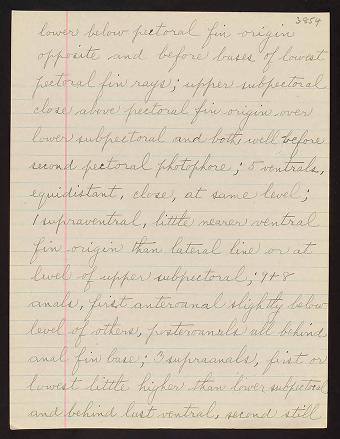 3859
lower below pectoral fin origin
opposite and before bases of lowest
pectoral fin rays; upper subpectoral
close above pectoral fin origin over
lower subpectoral and both well before
second pectoral photophore; 5 ventrals,
equidistant, close, at same level;
1 supraventral, little nearer ventral
fin origin than lateral line or at
level of upper subpectoral; 9+8
anals, first anteroanal slightly below
level of others, posteroanals all behind
anal fin base; 3 supraanals, first or
lowest little higher than lower subpectoral
and behind last ventral, second still